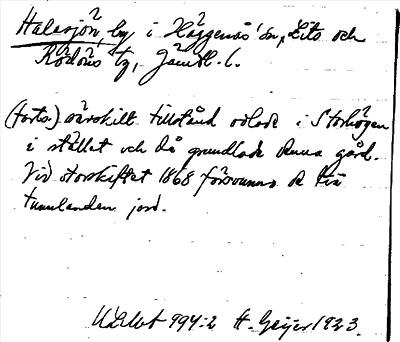 Halasjön, by i Häggenås' sn, Lits och
Rödöns tg, Jämtl. l.
(forts.) särskilt tillstånd odlade i Storhögen
i stället och då grundlade denna gård.
Vid storskiftet 1868 försvunno de tio
tunnlanden jord.
ULMA 994:2 H. Geijer 1923.